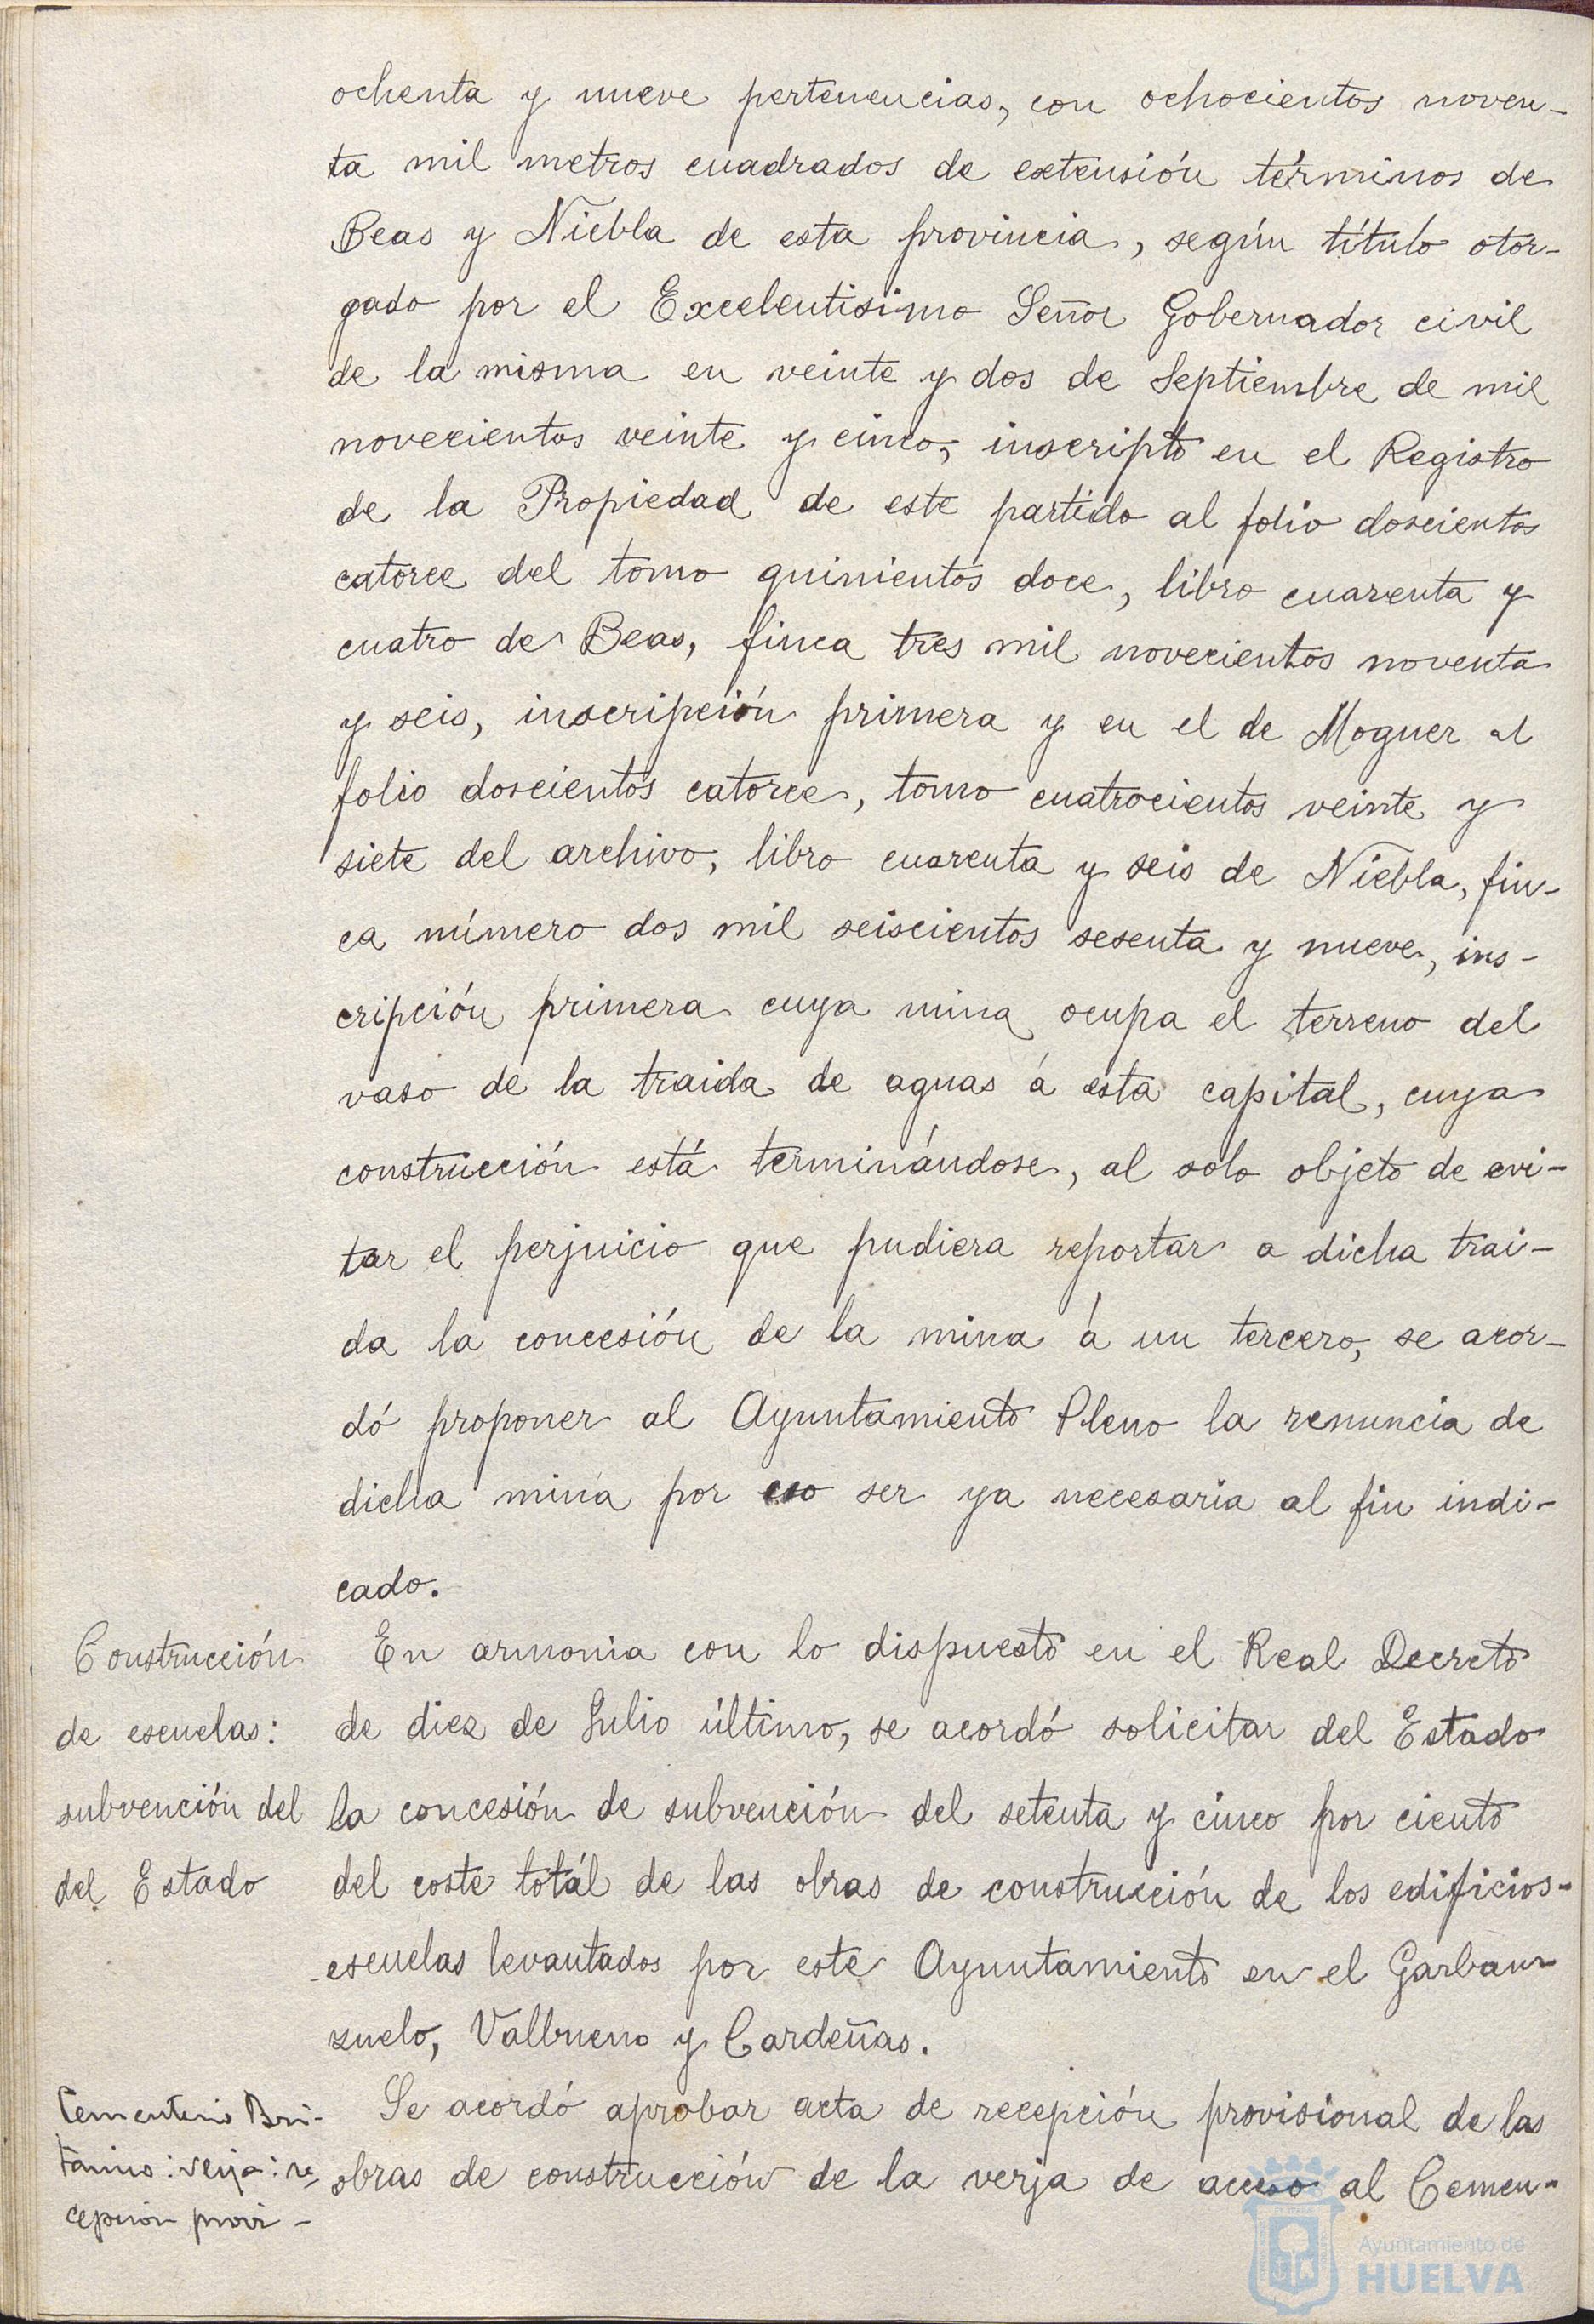 ochenta y nueve pertenencias, con ochocientos noven-
ta mil metros cuadrados de extensión términos de
Beas y Niebla de esta provincia, según título otor-
gado por el Excelentisimo Señor Gobernador civil
de la misma en veinte y dos de Septiembre de mil
novecientos veinte y cinco, inscripto en el Registro
de la Propiedad de este partido al folio doscientos
catorce del tomo quinientos doce, libro cuarenta y
cuatro de Beas, finca tres mil novecientos noventa
y seis, inscripción primera y en el de Moguer al
folio doscientos catorce, tomo cuatrocientos veinte y
siete del archivo, libro cuarenta y seis de Niebla, fin-
ca número dos mil seiscientos sesenta y nueve, ins-
cripción primera cuya mina ocupa el terreno del
vaso de la traida de aguas á esta capital, cuya
construcción está terminándose, al solo objeto de evi-
tar el perjuicio que pudiera reportar a dicha trai-
da la concesión de la mina á un tercero, se acor-
dó proponer al Ayuntamiento Pleno la renuncia de
dicha mina por eso ser ya necesaria al fin indi-
cado.
Construcción
de escuelas:
subvención del
del Estado
En armonia con lo dispuesto en el Real Decreto
de diez de Julio último, se acordó solicitar del Estado
la concesión de subvención del setenta y cinco por ciento
del coste totál de las obras de construcción de los edificios-
escuelas levantados por este Ayuntamiento en el Garban-
zuelo, Valbueno y Cardeñas.
Cementerio Bri-
tanico: verja: re
cepcion provi-
Se acordó aprobar acta de recepción provisional de las
obras de construcción de la verja de acceso al Cemen-
Ayuntamiento de
HUELVA